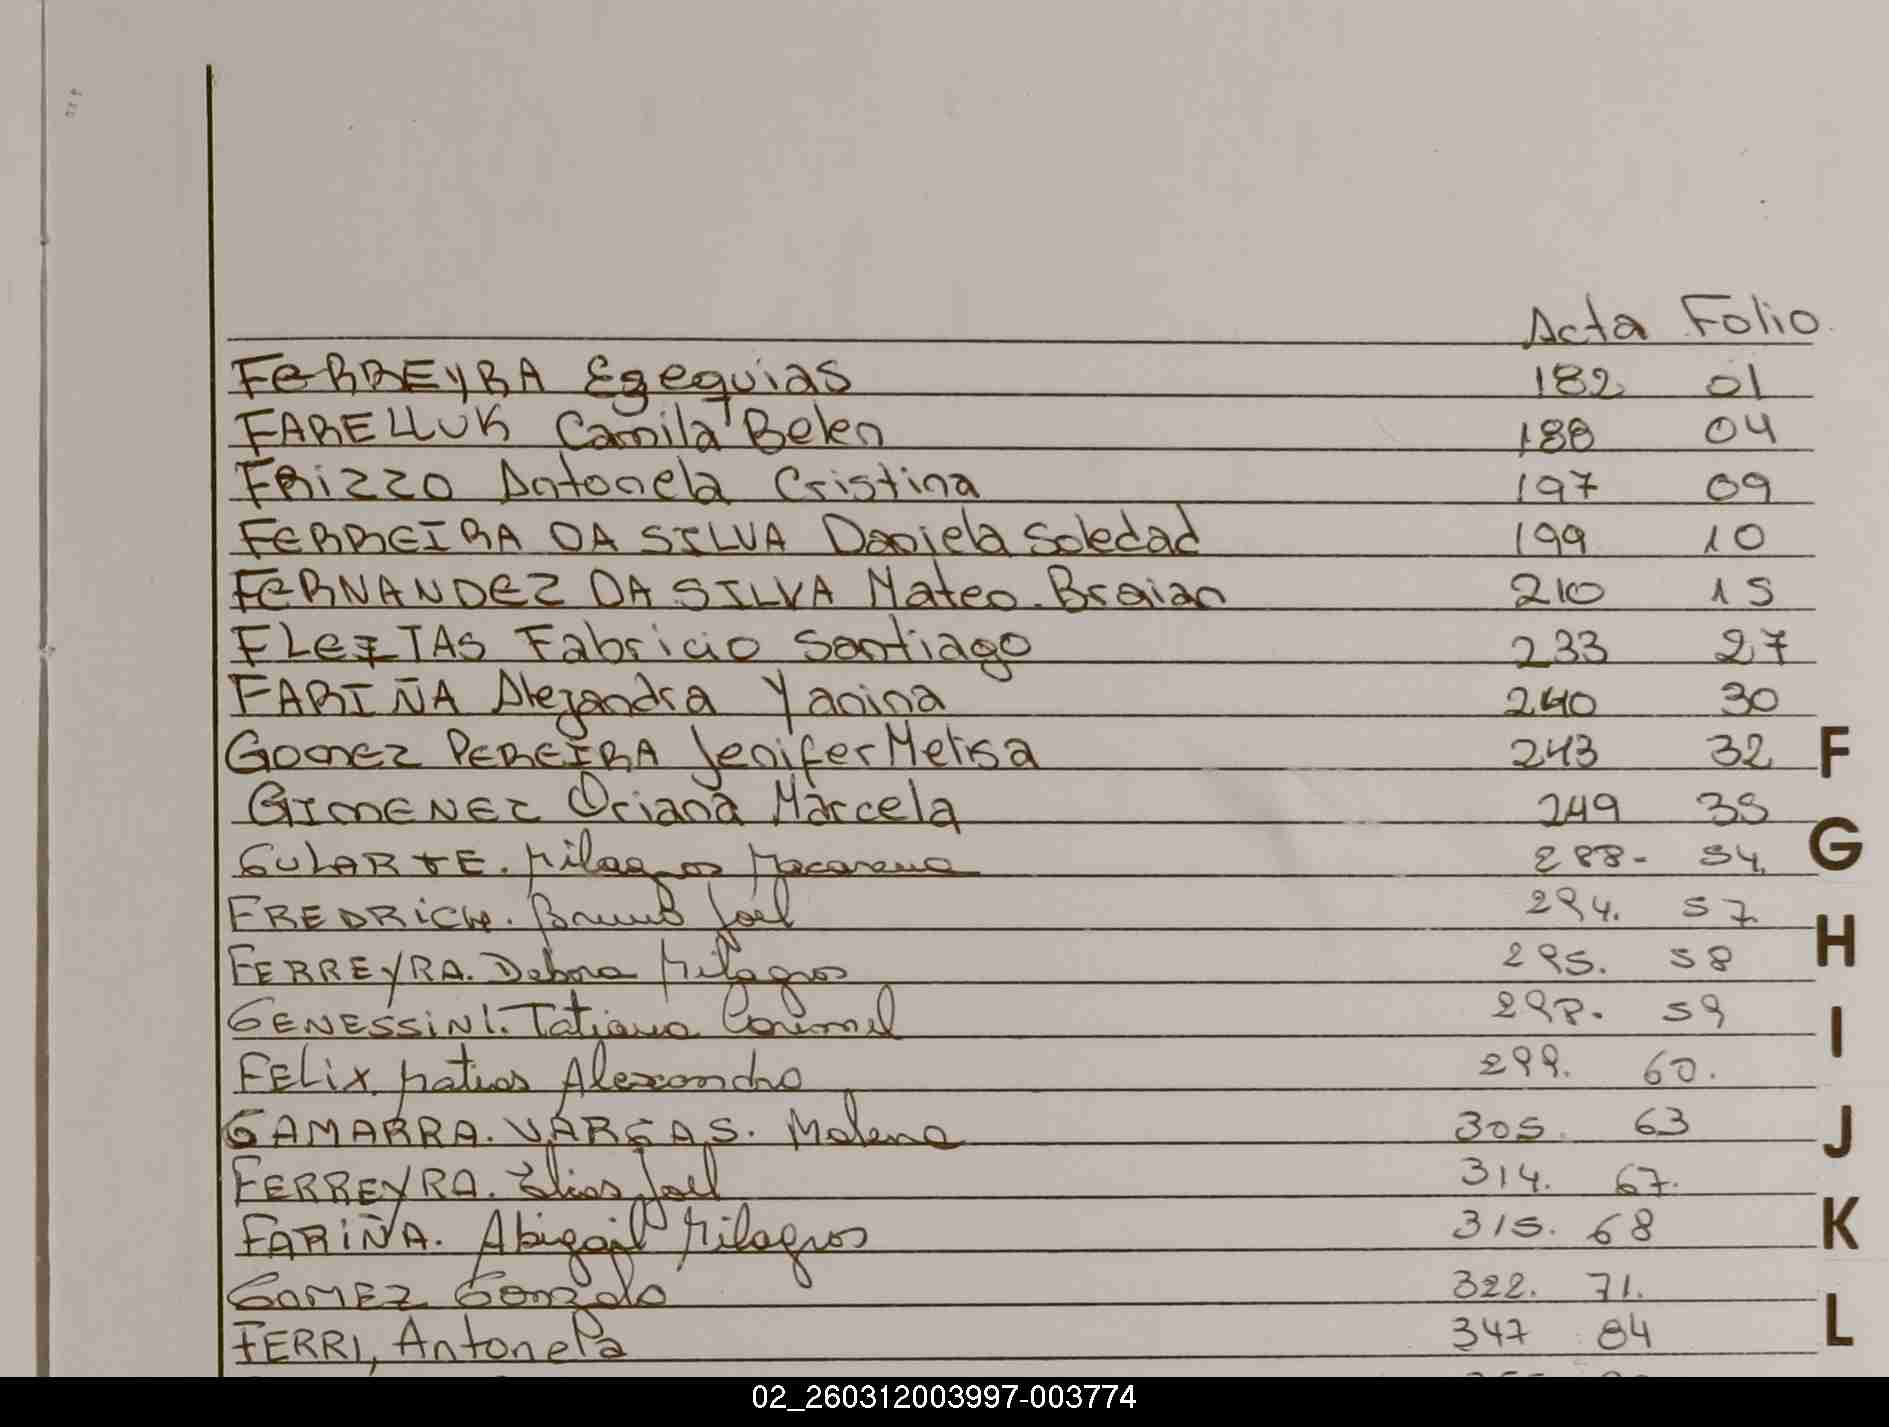 Acta Folio
FERREYRA Ezequias 182 01
FARELLUK Camila Belen 188 04
FRIZZO Antonela Cristina 197 09
FERREIRA DA SILVA Daniela Soledad 199 10
FERNANDEZ DA SILVA Mateo Braian 210 15
FLEITAS Fabricio Santiago 233 27
FARIÑA Alejandra Yanina 240 30
GOMEZ PEREIRA Jenifer Melisa 243 32 F
GIMENEZ Oriana Marcela 249 35
GULARTE. Milagros Macarena 288. 54. G
FREDRICH. Bruno Joel 294. 57.
FERREYRA. Debora Milagros 295. 58 H
GENESSINI. Tatiana 298. 59 I
FELIX. Matias Alexandro 299. 60.
GAMARRA. VARGAS. Malena 305. 63 J
FERREYRA. Elias Joel 314. 67.
FARIÑA. Abigail Milagros 315. 68 K
GOMEZ Gonzalo 322. 71.
FERRI, Antonela 347 84 L
02_260312003997-003774